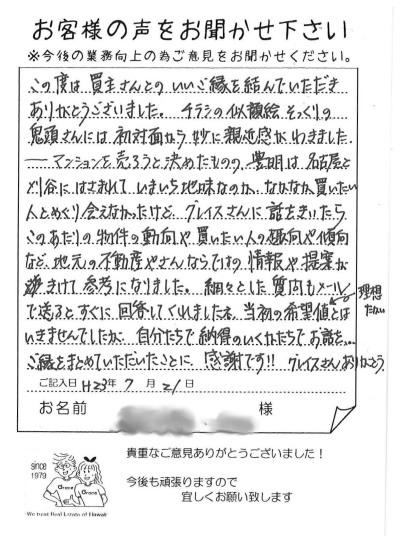 お客様の声をお聞かせ下さい
※今後の業務向上の為ご意見をお聞かせください。
この度は買主さんとのいいご縁を結んでいただき
ありがとうございました。チラシの似顔絵そっくりの
鬼頭さんには初対面から妙に親近感がわきました。
――マンションを売ろうと決めたものの、豊明は名古屋と
刈谷にはさまれていまいち地味なのか、なかなか買いたい
人とめぐり会えなかったけど、グレイスさんに話をきいたら
このあたりの物件の動向や買いたい人の傾向
など、地元の不動産やさんならではの情報や提案が
きけて参考になりました。細々とした質問もメール
で送るとすぐに回答してくれましたね。当初の希望値とは
理想
いきませんでしたが、自分たちで納得のいくかたちでお話を…
ご縁をまとめていただいたことに感謝です!! グレイスさんありがとう。
ご記入日 H23年 7月 21日
お名前 様
since
1979
Grace Grace
We trust Real Estate of Flower
貴重なご意見ありがとうございました！
今後も頑張りますので
宜しくお願い致します